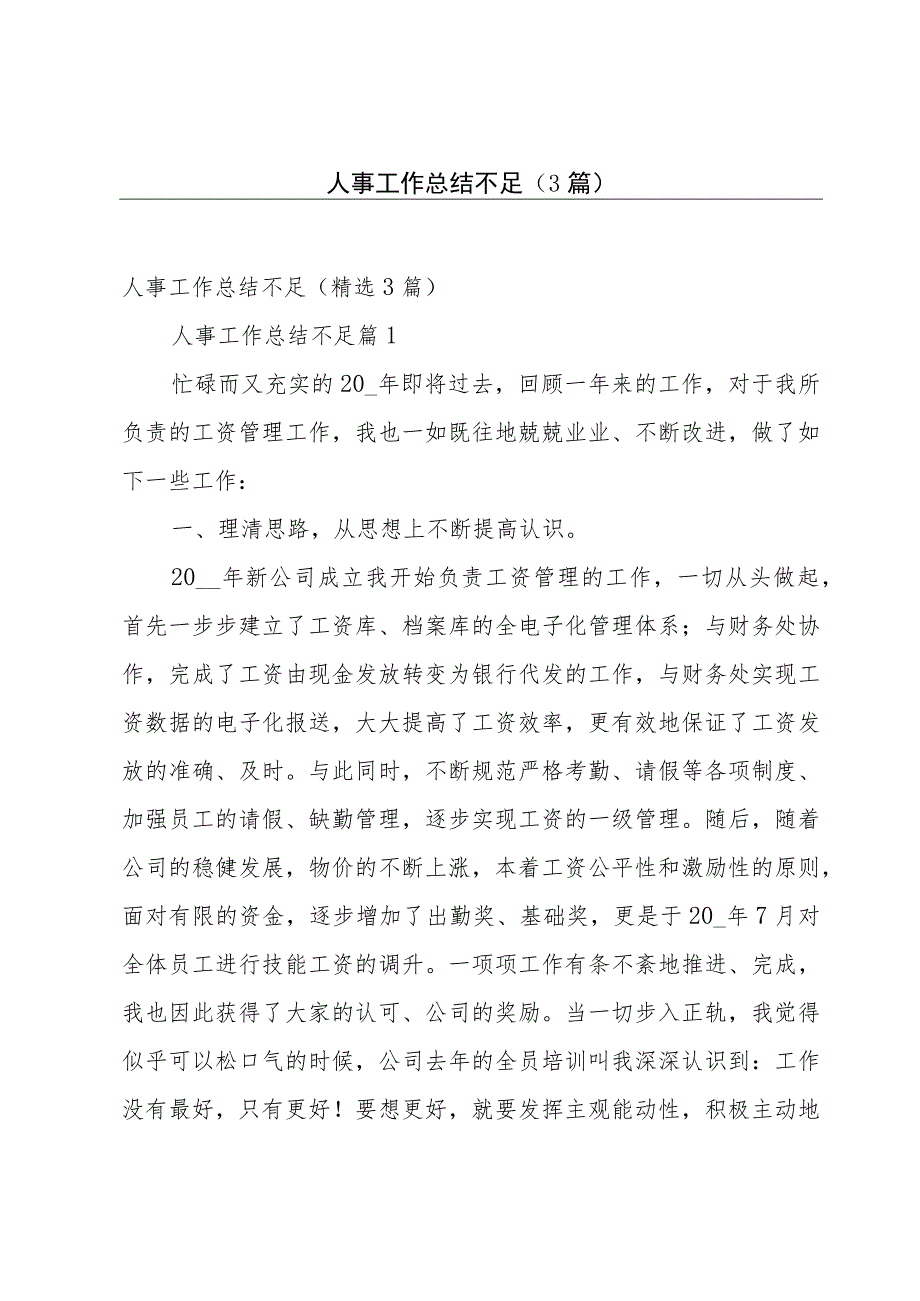 人事工作总结不足（3 篇）
人事工作总结不足（精选 3 篇）
人事工作总结不足篇 1
忙碌而又充实的 20_年即将过去，回顾一年来的工作，对于我所
负责的工资管理工作，我也一如既往地兢兢业业、不断改进，做了如
下一些工作：
一、理清思路，从思想上不断提高认识。
20__年新公司成立我开始负责工资管理的工作，一切从头做起，
首先一步步建立了工资库、档案库的全电子化管理体系；与财务处协
作，完成了工资由现金发放转变为银行代发的工作，与财务处实现工
资数据的电子化报送，大大提高了工资效率，更有效地保证了工资发
放的准确、及时。与此同时，不断规范严格考勤、请假等各项制度、
加强员工的请假、缺勤管理，逐步实现工资的一级管理。随后，随着
公司的稳健发展，物价的不断上涨，本着工资公平性和激励性的原则，
面对有限的资金，逐步增加了出勤奖、基础奖，更是于 20_年 7 月对
全体员工进行技能工资的调升。一项项工作有条不紊地推进、完成，
我也因此获得了大家的认可、公司的奖励。当一切步入正轨，我觉得
似乎可以松口气的时候，公司去年的全员培训叫我深深认识到：工作
没有最好，只有更好！要想更好，就要发挥主观能动性，积极主动地